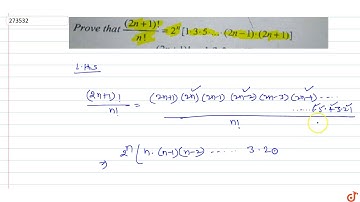 273532
Prove that (2n+1)!/n! = 2ⁿ[1·3·5... ·(2n−1)·(2n+1)]
L.H.S
(2n+1)!/n! = (2n+1)(2n)(2n-1)(2n-2)(2n-3)
n!
⇒ 2ⁿ[n·(n-1)(n-2)······ 3·2